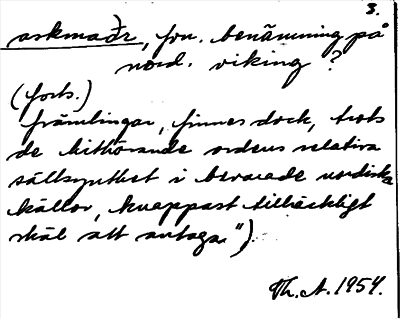 3.
askmaðr, fvn. benämning på
nord. viking?
(forts.)
främlingar, finnes dock, trots
de hithörande ordens relativa
sällsynthet i bevarade nordiska
källor, knappast tillräckligt
skäl att antaga.")
Th. A. 1954.